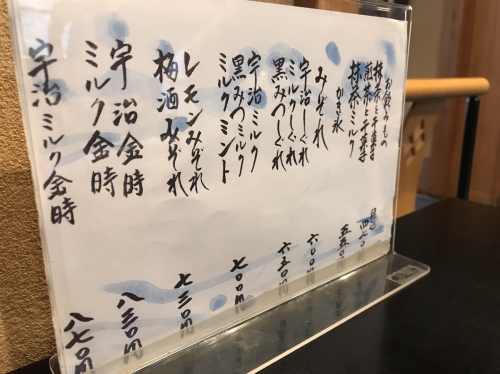 お飲みもの
抹茶と干菓子
煎茶と干菓子
抹茶ミルク
かき氷
みぞれ
宇治しぐれ
ミルクしぐれ
黒みつしぐれ
宇治ミルク
黒みつミルク
ミルクミント
レモンみぞれ
梅酒みぞれ
宇治金時
ミルク金時
宇治ミルク金時
五五〇
六〇〇円
六五〇円
七〇〇円
七三〇円
八三〇円
八七〇円